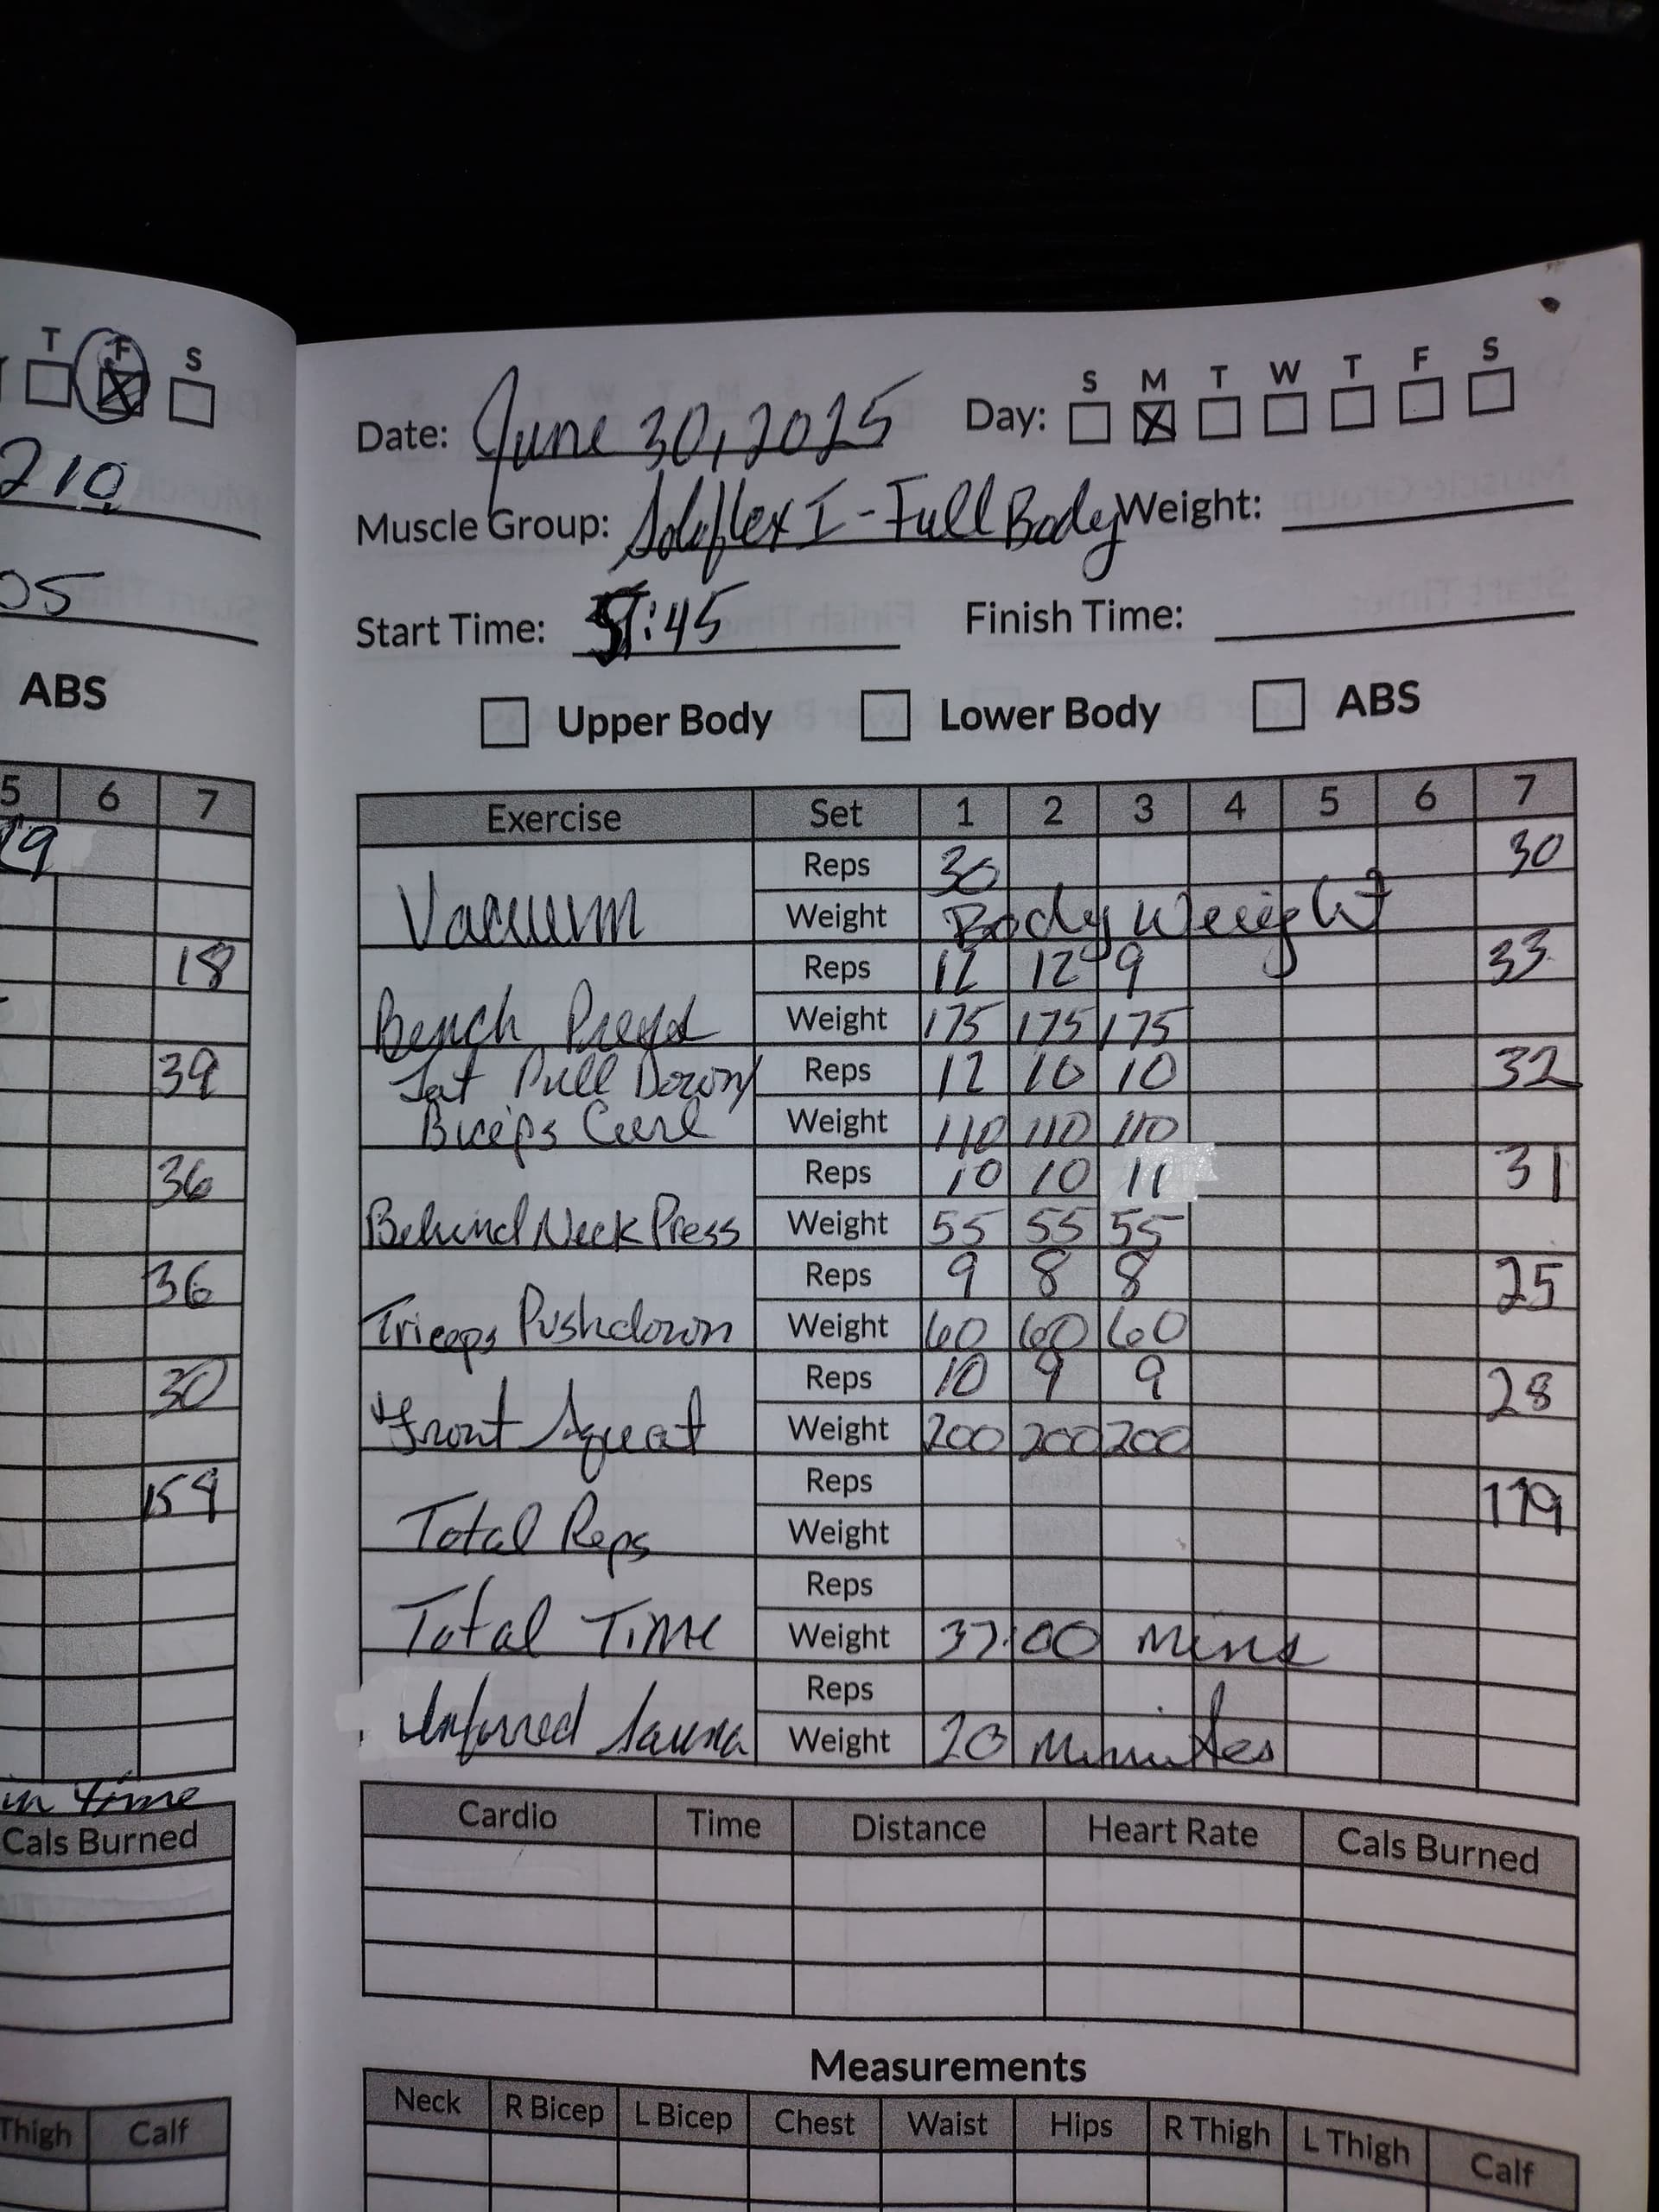 T F S
210
05
ABS
5 6 7
19
18
39
36
36
30
159
in time
Cals Burned
Thigh Calf
S M T W T F S
Date: June 30, 2025 Day:
Muscle Group: Soloflex I - Full Body Weight:
Start Time: :45 Finish Time:
Upper Body Lower Body ABS
Exercise Set 1 2 3 4 5 6 7
Reps 30 30
Vacuum Weight Body Weight
Reps 12 12 9 33
Bench Press Weight 175 175 175
Lat Pull Down/ Reps 12 10 10 32
Biceps Curl Weight 110 110 110
Reps 10 10 11 31
Behind Neck Press Weight 55 55 55
Reps 9 8 8 25
Triceps Pushdown Weight 60 60 60
Reps 10 9 9 28
Front Squat Weight 200 200 200
Reps 179
Total Reps Weight
Reps
Total Time Weight 37:00 mins
Reps
Infrared Sauna Weight 20 minutes
Cardio Time Distance Heart Rate Cals Burned
Measurements
Neck R Bicep L Bicep Chest Waist Hips R Thigh L Thigh Calf